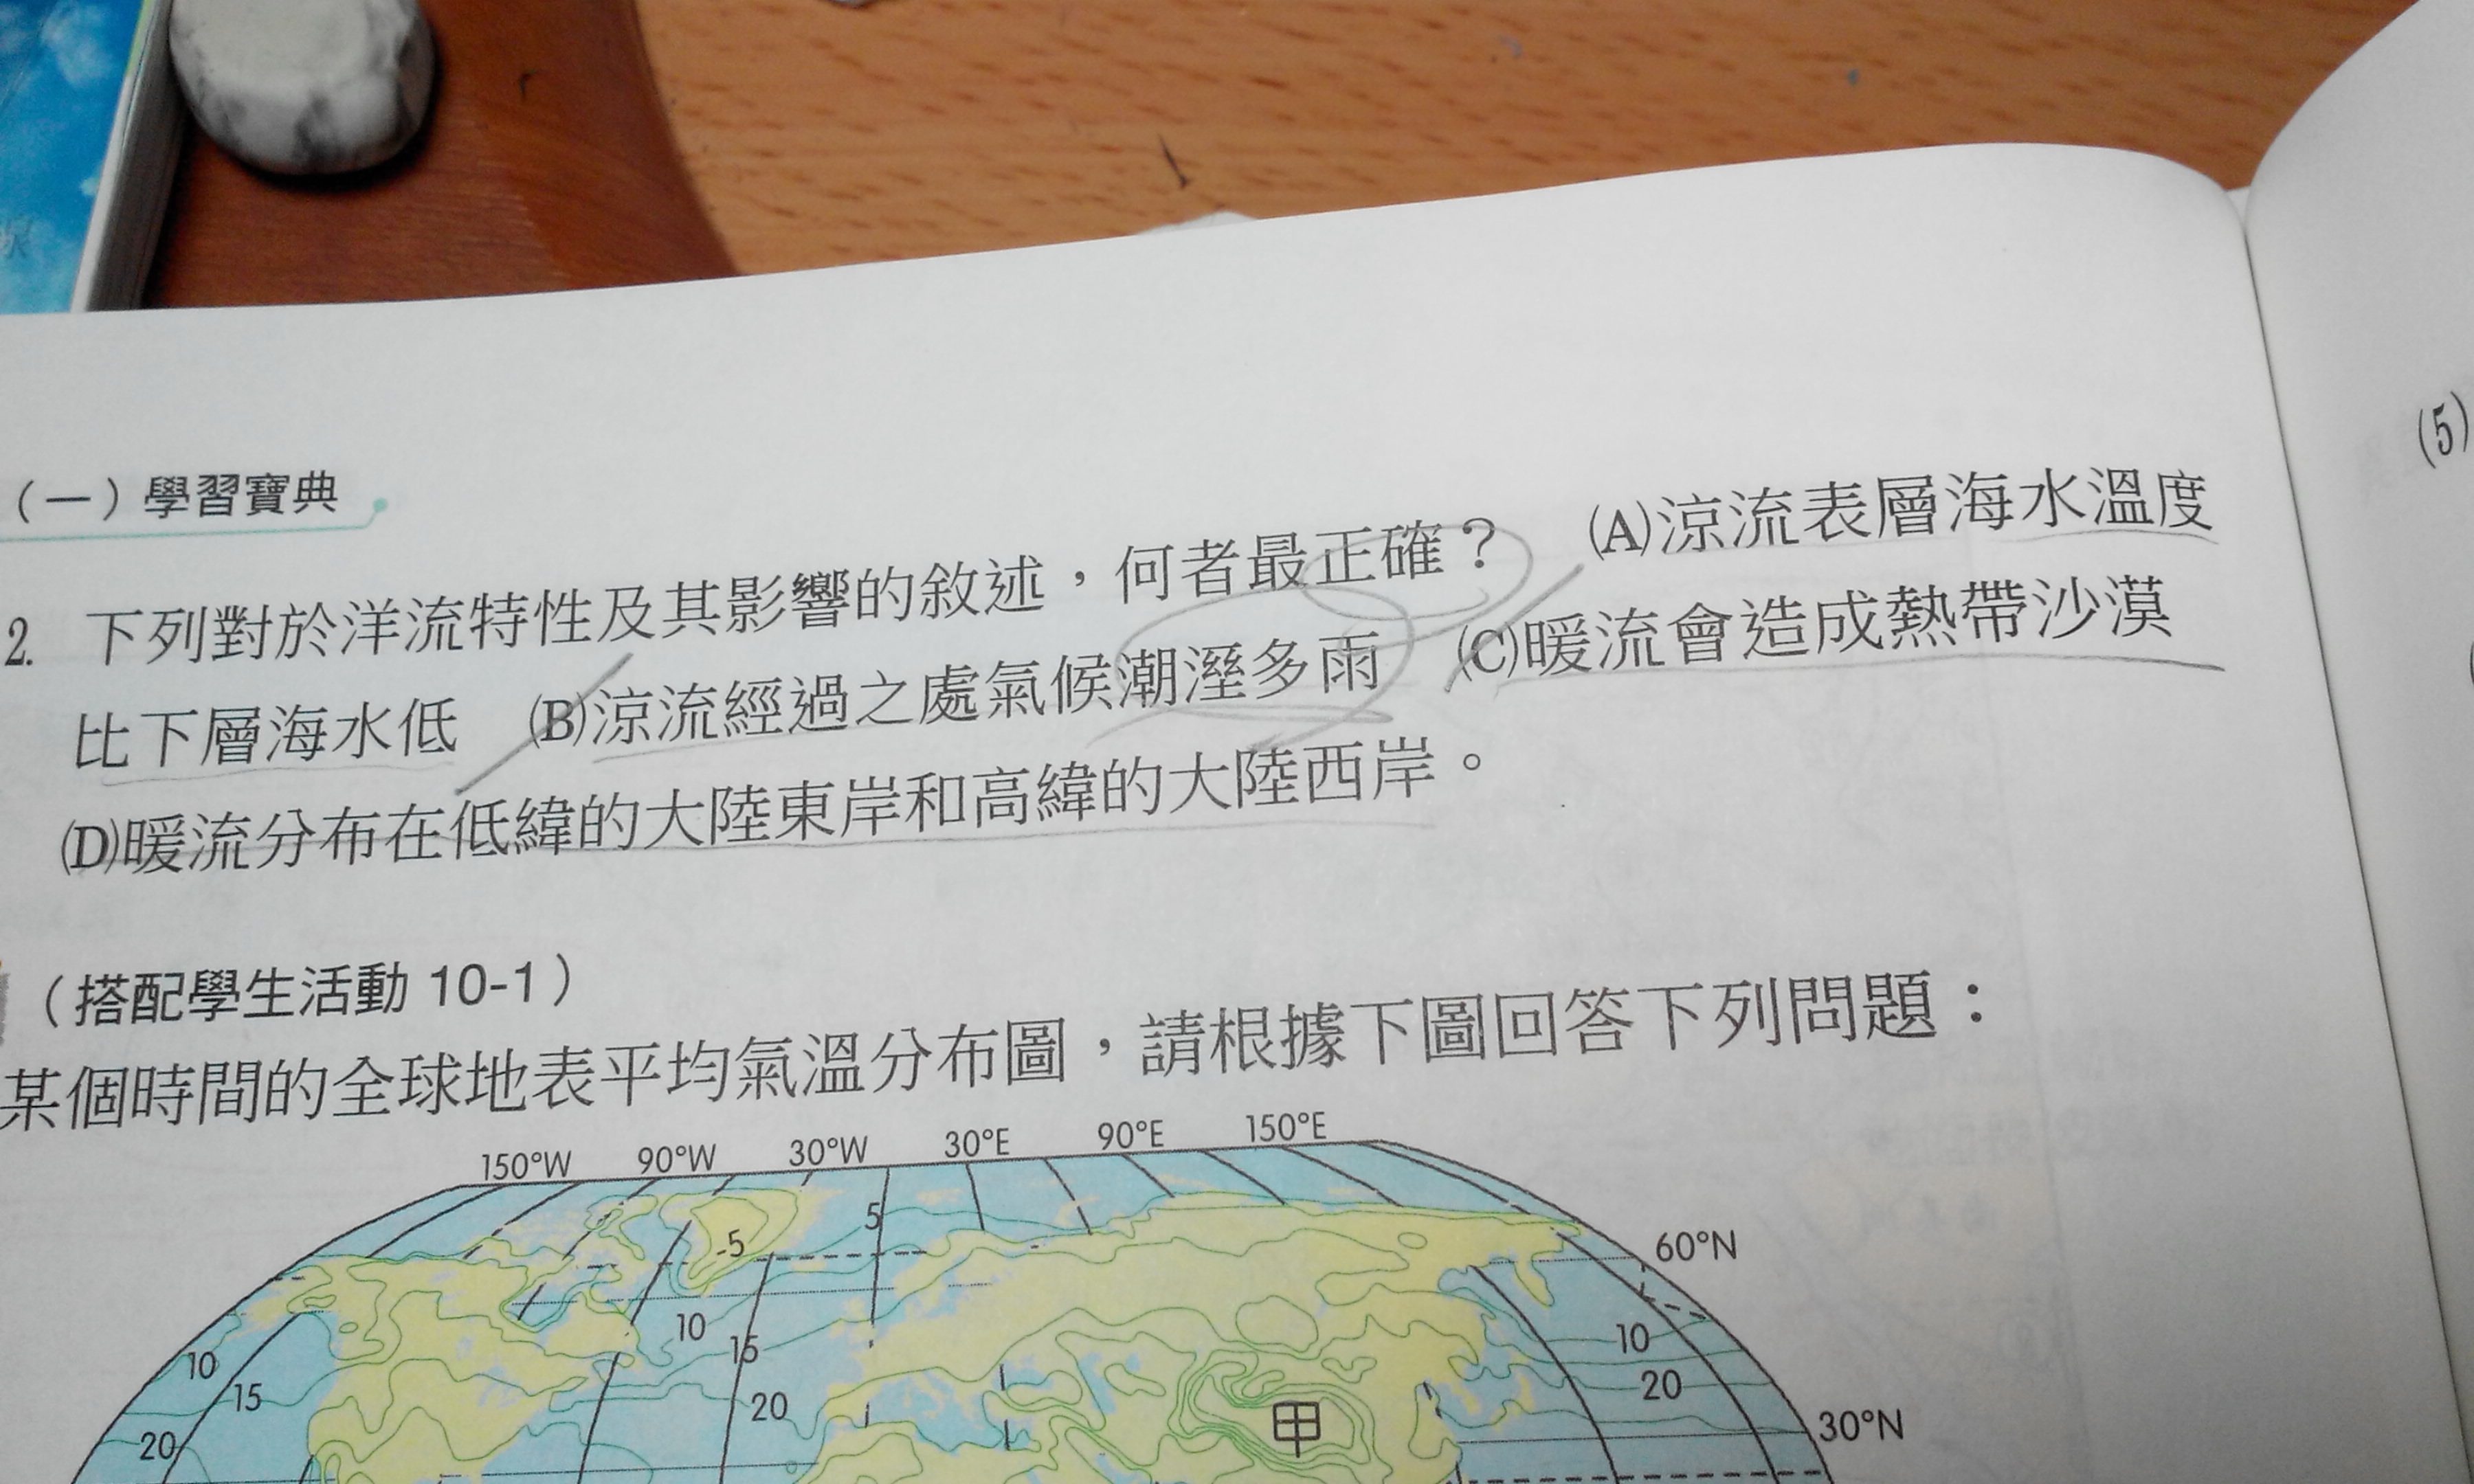 (5)
（一）學習寶典
2. 下列對於洋流特性及其影響的敘述，何者最正確？ (A)涼流表層海水溫度
比下層海水低 (B)涼流經過之處氣候潮溼多雨 (C)暖流會造成熱帶沙漠
(D)暖流分布在低緯的大陸東岸和高緯的大陸西岸。
（搭配學生活動 10-1）
某個時間的全球地表平均氣溫分布圖，請根據下圖回答下列問題：
150°W 90°W 30°W 30°E 90°E 150°E
5
-5
60°N
10
15
10
10
15
20
20
20
甲
30°N